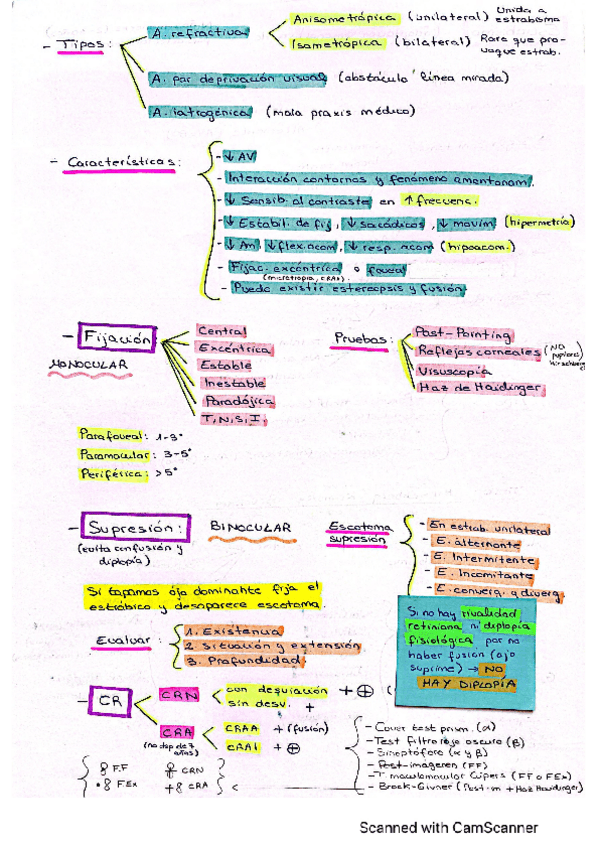 - Tipos:
A. refractiva
Anisometrópica (unilateral) Unida a estrabismo
Isometrópica (bilateral) Rara que provoque estrab.
A. por deprivación visual (obstáculo línea mirada)
A. iatrogénica (mala praxis médico)
- Características:
- ↓ AV
- Interacción contornos y fenómeno amontonam.
- ↓ Sensib. al contraste en ↑ frecuenc.
- ↓ Estabil. de fij, ↓ sacádicos, ↓ movim (hipermetría)
- ↓ Am, ↓ flex. acom, ↓ resp. acom (hipoacom.)
- Fijac. excéntrica o foveal
(microtropia, CRA)
- Puede existir estereopsis y fusión
- Fijación
MONOCULAR
Central
Excéntrica
Estable
Inestable
Paradójica
T, N, S, I.
Pruebas:
Past-Pointing
Reflejos corneales (NO pupilares) Hirschberg
Visuscopía
Haz de Haidinger
Parafoveal: 1-3°
Paramacular: 3-5°
Periférica: >5°
- Supresión:
(evita confusión y
diplopía)
BINOCULAR
Escotoma
supresión
- En estrab. unilateral
- E. alternante
- E. Intermitente
- E. Incomitante
- E. converg. y diverg.
Si tapamos ojo dominante fija el
estrábico y desaparece escotoma.
Evaluar:
1. Existencia
2. Situación y extensión
3. Profundidad
Si no hay rivalidad
retiniana ni diplopía
fisiológica por no
haber fusión (ojo
suprime) → NO
HAY DIPLOPÍA
- CR
CRN
con desviación + ⊕
sin desv. +
CRA
(no dsp de 7
años)
CRAA + (fusión)
CRAI + ⊕
- Cover test prism. (α)
- Test filtro rojo oscuro (β)
- Sinoptóforo (α y β)
- Post-imágenes (FF)
- T maculomacular Cüpers (FF o FEx)
- Brock-Givner (Post-im + Haz Haidinger)
F.F
CRN
F.Ex
CRA
Scanned with CamScanner